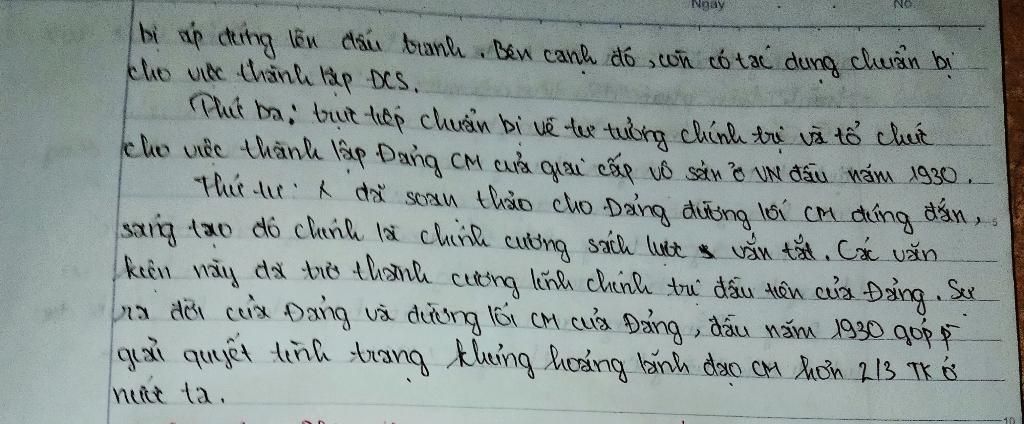 Ngày No
bị áp dứng lên đấu tranh. Bên cạnh đó, còn có tác dụng chuẩn bị
cho việc thành lập ĐCS.
Thứ ba: trực tiếp chuẩn bị về tư tưởng chính trị và tổ chức
cho việc thành lập Đảng CM của giai cấp vô sản ở VN đầu năm 1930.
Thứ tư: đã soạn thảo cho Đảng đường lối CM đúng đắn,
sáng tạo đó chính là chính cương sách lược vắn tắt. Các văn
kiện này đã trở thành cương lĩnh chính trị đầu tiên của Đảng. Sự
ra đời của Đảng và đường lối CM của Đảng, đầu năm 1930 góp p
giải quyết tình trạng khủng hoảng lãnh đạo CM hơn 2/3 TK ở
nước ta.